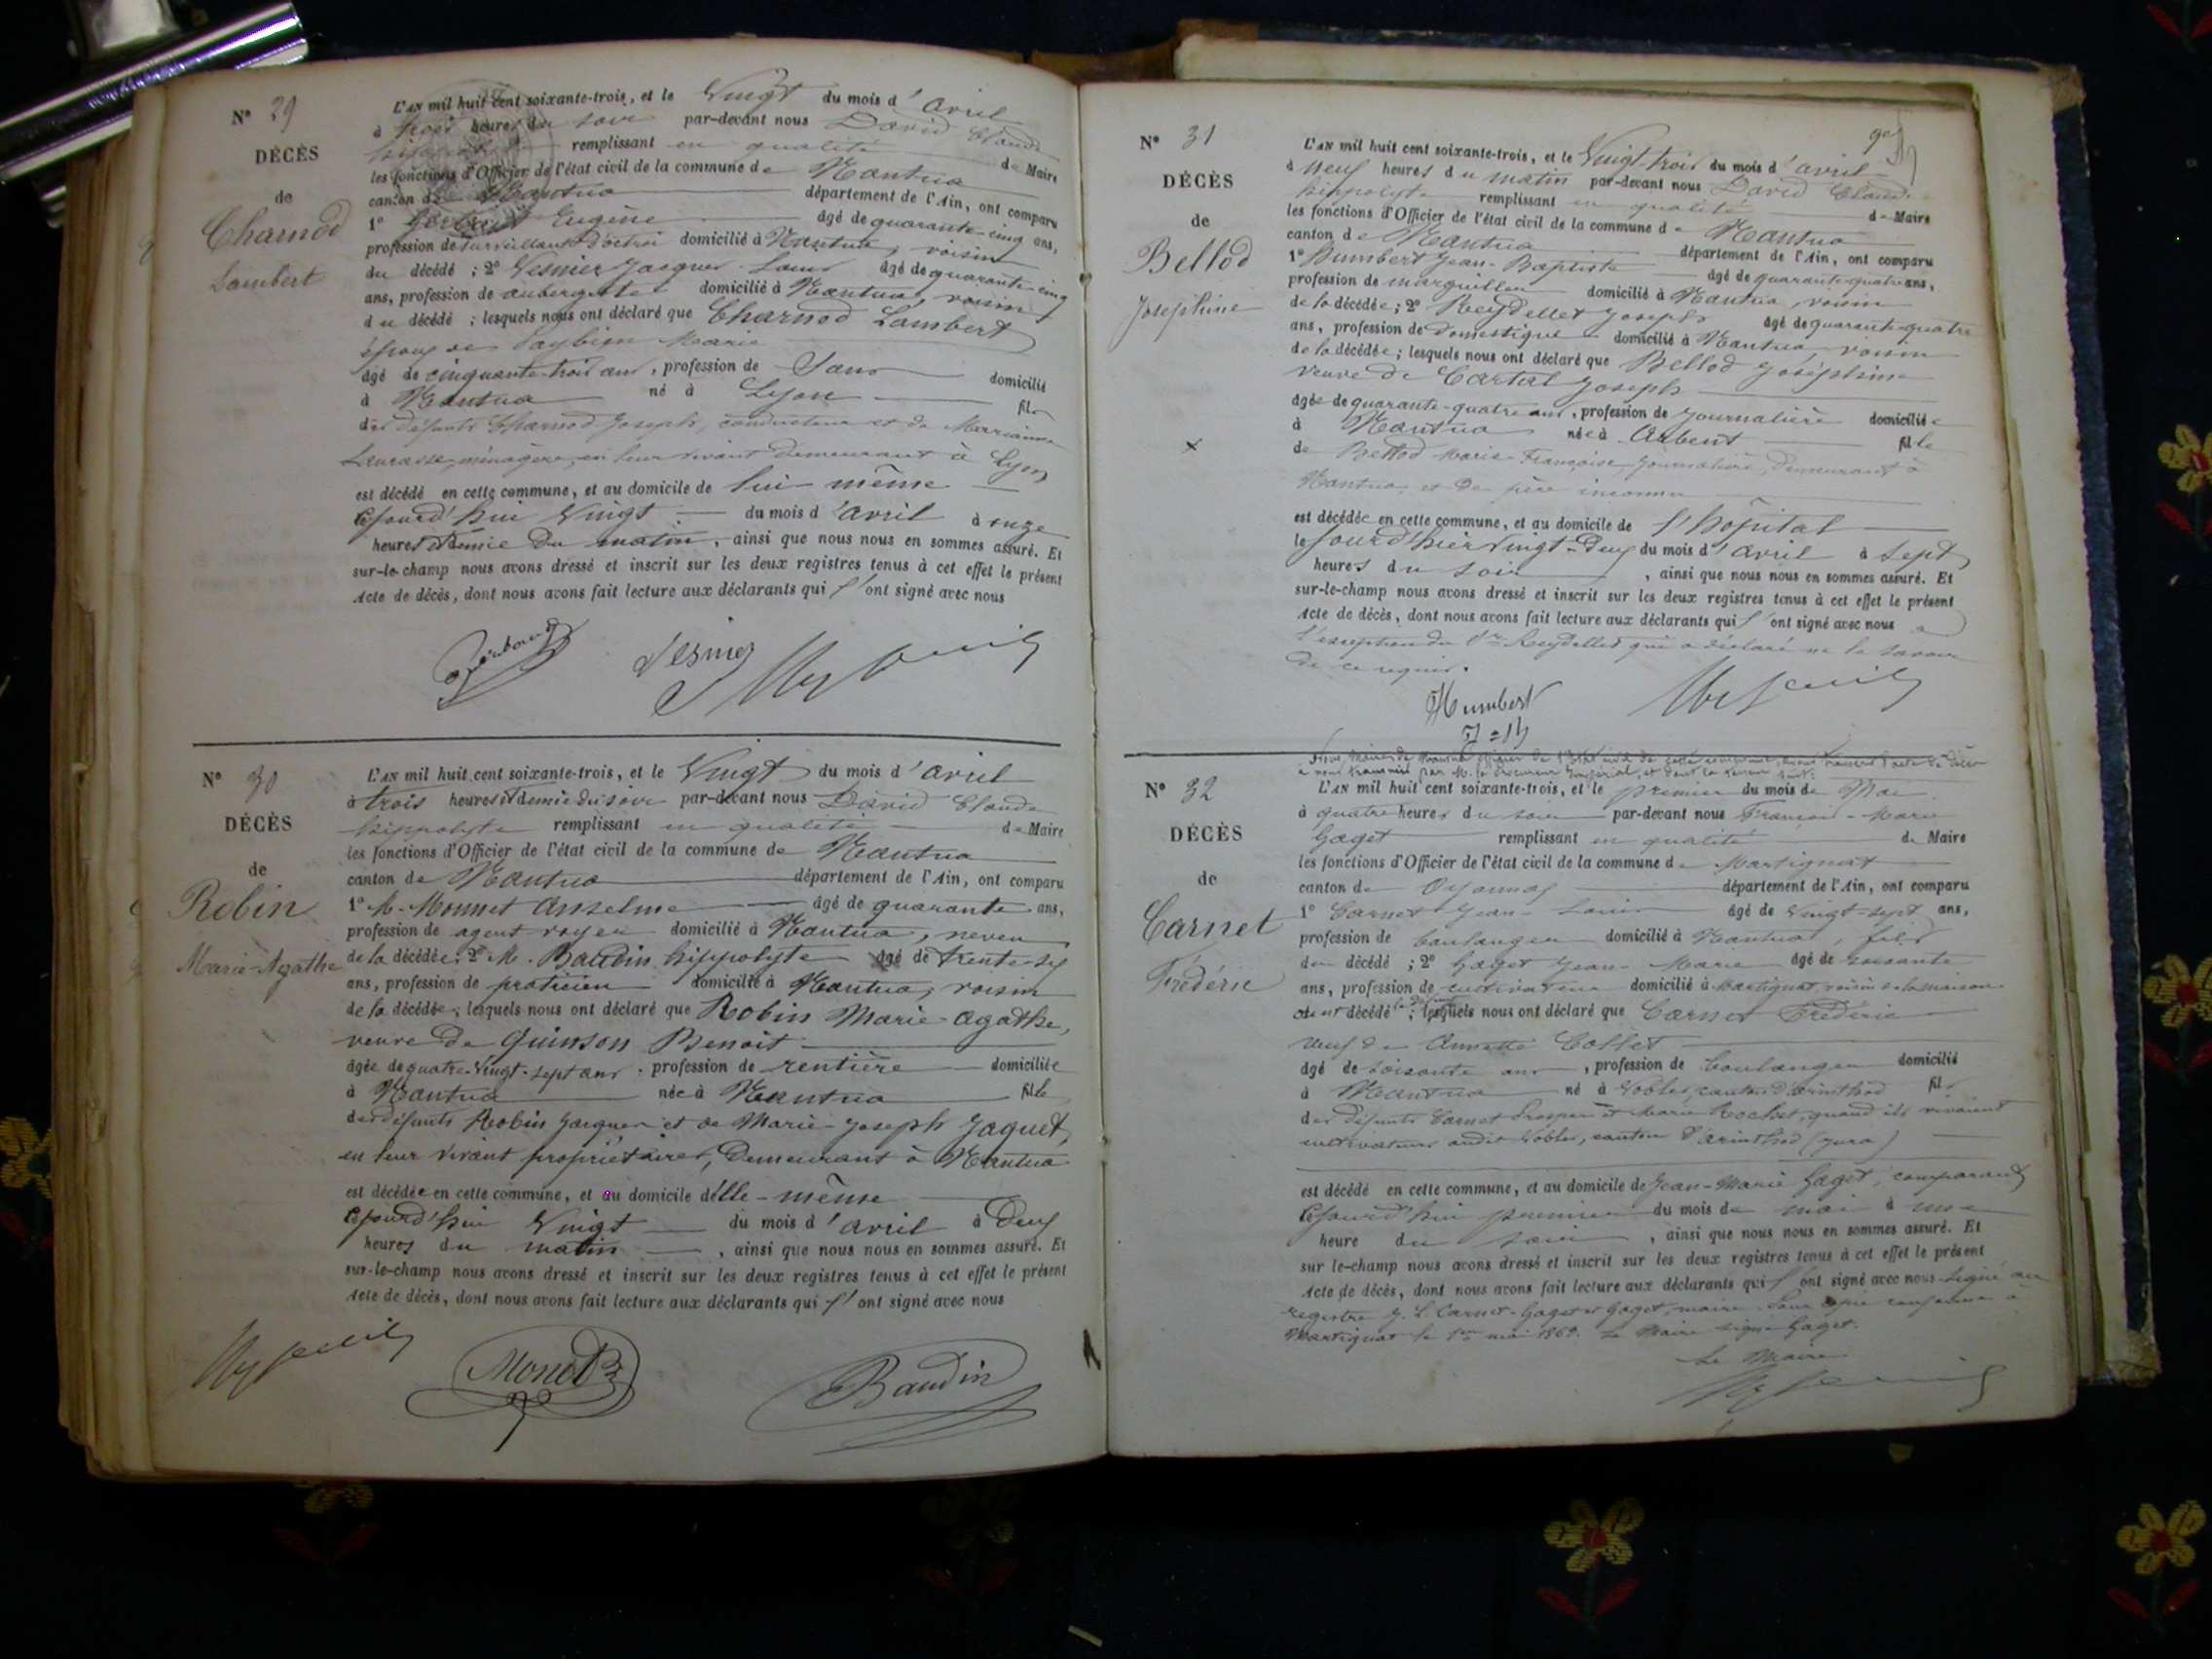 N° 29
DÉCÈS
de
Charnod
Lambert
L'AN mil huit cent soixante-trois, et le Vingt du mois d'avril
à trois heures du soir par-devant nous David Claude
hippolyte remplissant en qualité de Maire
les fonctions d'Officier de l'état civil de la commune de Nantua
canton de Nantua département de l'Ain, ont comparu
1° Eugène âgé de quarante-cinq ans,
profession de surveillant d'octroi domicilié à Nantua, voisin
du décédé ; 2° Vesnier Jacques Louis âgé de quarante-cinq
ans, profession de aubergiste domicilié à Nantua, voisin
du décédé ; lesquels nous ont déclaré que Charnod Lambert
époux de Marie
âgé de cinquante-trois ans, profession de Sans domicilié
à Nantua né à Lyon fils
des défunts Charnod Joseph, conducteur et de Marianne
ménagère, en leur vivant demeurant à Lyon
est décédé en cette commune, et au domicile de lui-même
cejourd'hui Vingt du mois d'avril à onze
heures et demie du matin, ainsi que nous nous en sommes assuré. Et
sur-le-champ nous avons dressé et inscrit sur les deux registres tenus à cet effet le présent
Acte de décès, dont nous avons fait lecture aux déclarants qui l'ont signé avec nous
N° 30
DÉCÈS
de
Robin
Marie-Agathe
L'AN mil huit cent soixante-trois, et le Vingt du mois d'avril
à trois heures et demie du soir par-devant nous David Claude
hippolyte remplissant en qualité de Maire
les fonctions d'Officier de l'état civil de la commune de Nantua
canton de Nantua département de l'Ain, ont comparu
1° M. Monnet Anselme âgé de quarante ans,
profession de agent voyer domicilié à Nantua, neveu
de la décédée ; 2° M. Baudin hippolyte âgé de trente-six
ans, profession de praticien domicilié à Nantua, voisin
de la décédée ; lesquels nous ont déclaré que Robin Marie-Agathe,
veuve de Guinson Benoit
âgée de quatre-Vingt-sept ans, profession de rentière domiciliée
à Nantua née à Nantua fille
des défunts Robin Jacques et de Marie-Joseph Jaquet,
en leur vivant propriétaires, demeurant à Nantua
est décédée en cette commune, et au domicile d'elle-même
cejourd'hui Vingt du mois d'avril à Deux
heures du matin, ainsi que nous nous en sommes assuré. Et
sur-le-champ nous avons dressé et inscrit sur les deux registres tenus à cet effet le présent
Acte de décès, dont nous avons fait lecture aux déclarants qui l'ont signé avec nous
Monet
Baudin
N° 31
DÉCÈS
de
Bellod
Joséphine
L'AN mil huit cent soixante-trois, et le Vingt-trois du mois d'avril
à neuf heures du matin par-devant nous David Claude
hippolyte remplissant en qualité de Maire
les fonctions d'Officier de l'état civil de la commune de Nantua
canton de Nantua département de l'Ain, ont comparu
1° Humbert Jean-Baptiste âgé de quarante-quatre ans,
profession de marguillier domicilié à Nantua, voisin
de la décédée ; 2° Reydellet Joseph âgé de quarante-quatre
ans, profession de Domestique domicilié à Nantua, voisin
de la décédée ; lesquels nous ont déclaré que Bellod Joséphine
veuve de Cartal Joseph
âgée de quarante-quatre ans, profession de journalière domiciliée
à Nantua née à Arbent fille
de Bellod Marie-Françoise, journalière, demeurant à
Nantua, et de père inconnu
est décédée en cette commune, et au domicile de l'hôpital
le jour d'hier Vingt-Deux du mois d'avril à sept
heures du soir, ainsi que nous nous en sommes assuré. Et
sur-le-champ nous avons dressé et inscrit sur les deux registres tenus à cet effet le présent
Acte de décès, dont nous avons fait lecture aux déclarants qui l'ont signé avec nous à
l'exception du Sr Reydellet qui a déclaré ne le savoir
de ce requis.
Humbert
N° 32
DÉCÈS
de
Carnet
Frédéric
L'AN mil huit cent soixante-trois, et le premier du mois de Mai
à quatre heures du soir par-devant nous François-Marie
Gaget remplissant en qualité de Maire
les fonctions d'Officier de l'état civil de la commune de Martignat
canton de Oyonnax département de l'Ain, ont comparu
1° Carnet Jean-Louis âgé de Vingt-sept ans,
profession de boulanger domicilié à Nantua, fils
du décédé ; 2° Gaget Jean-Marie âgé de soixante
ans, profession de cultivateur domicilié à Martignat voisin de la maison
où est décédé le défunt ; lesquels nous ont déclaré que Carnet Frédéric
veuf de Annette Collet
âgé de soixante ans, profession de boulanger domicilié
à Nantua né à Vobles, canton d'arinthod fils
des défunts Carnet Prosper et Marie Rochet, quand ils vivaient
cultivateurs audit Vobles, canton d'arinthod (Jura)
est décédé en cette commune, et au domicile de Jean-Marie Gaget, comparant
cejourd'hui premier du mois de mai à une
heure du soir, ainsi que nous nous en sommes assuré. Et
sur le-champ nous avons dressé et inscrit sur les deux registres tenus à cet effet le présent
Acte de décès, dont nous avons fait lecture aux déclarants qui l'ont signé avec nous. Signé au
registre J. L. Carnet, Gaget et Gaget, maire. Pour copie conforme à
Martignat le 1er mai 1863. Le Maire signé Gaget.
Le Maire